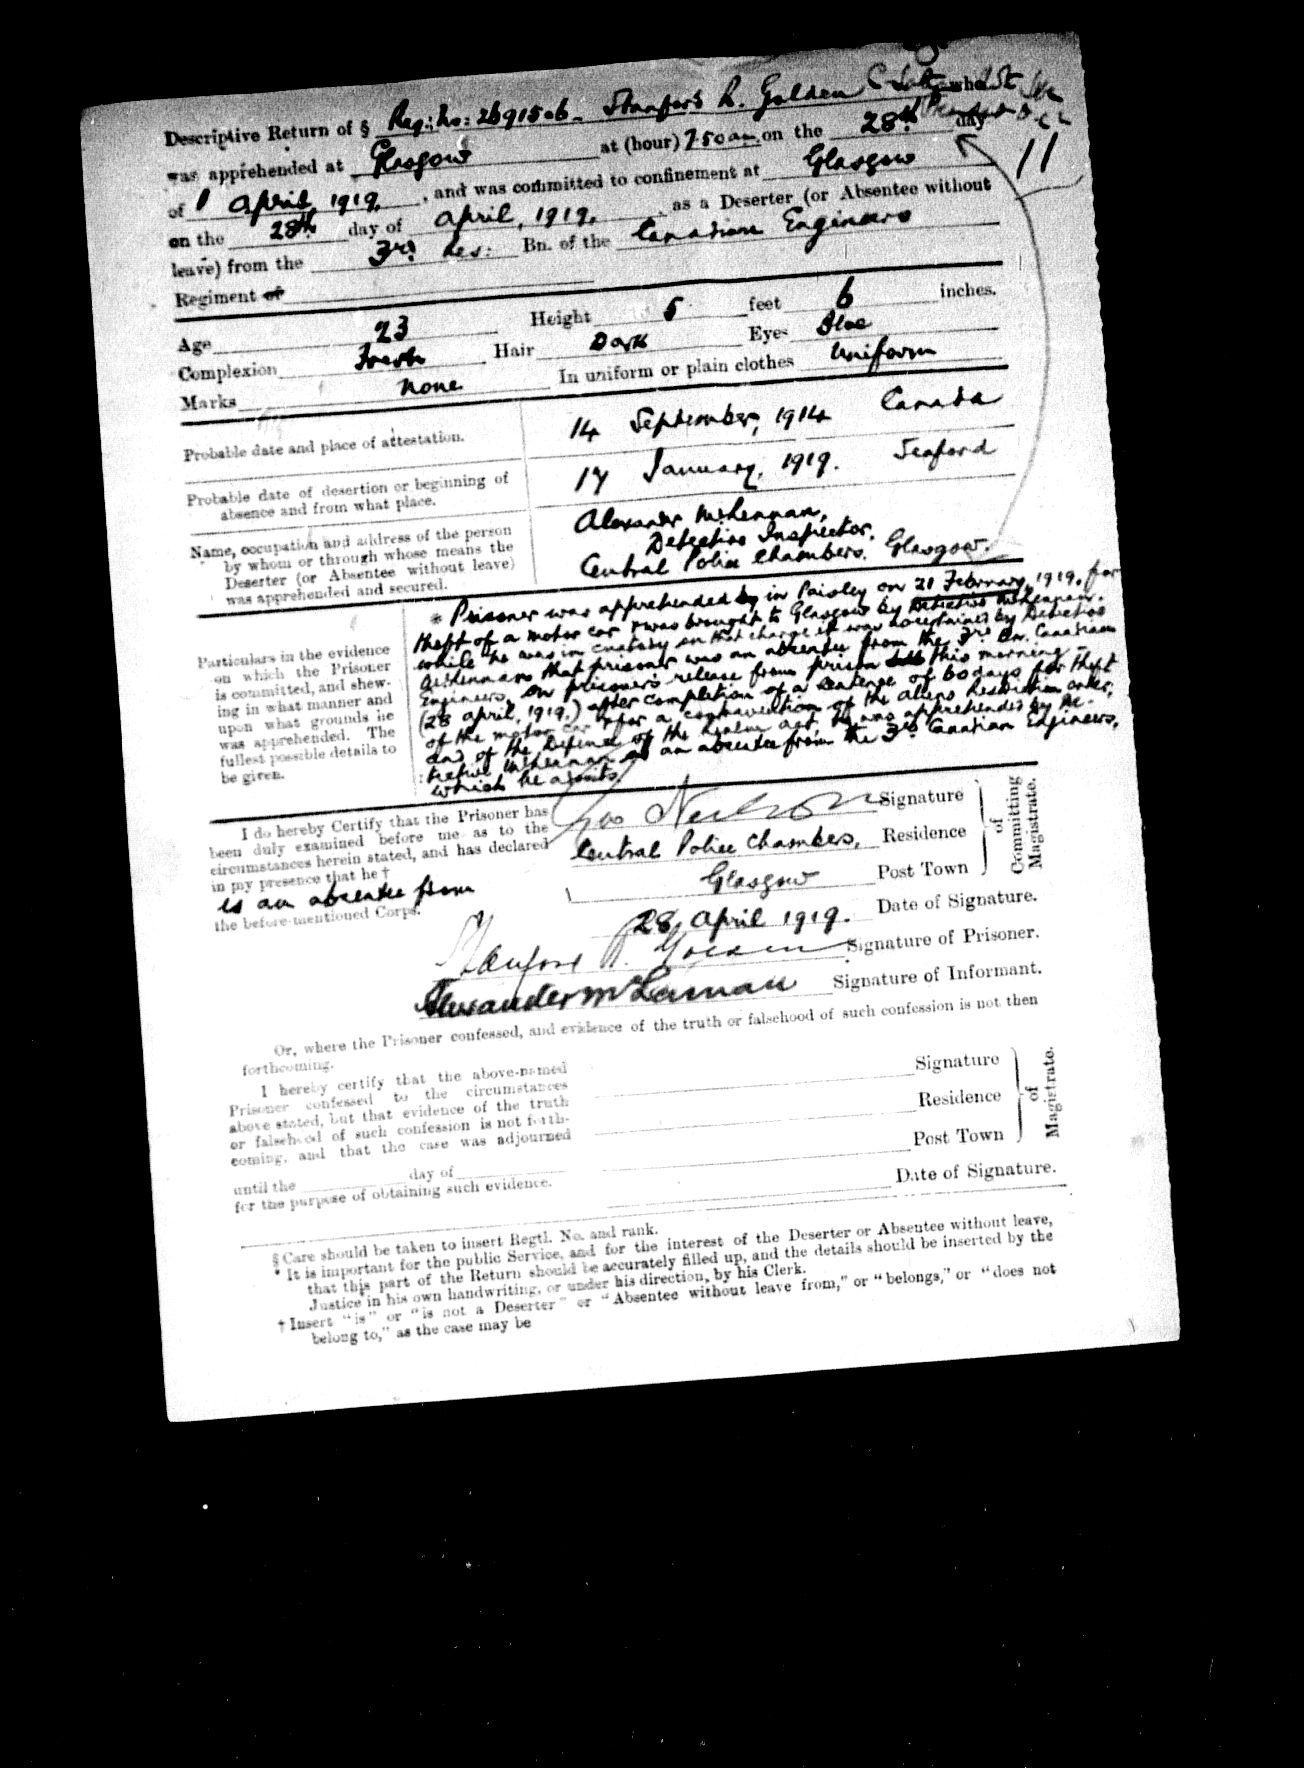 Descriptive Return of § Reg: No: 2691506 - Stanford R. Golden who
was apprehended at Glasgow at (hour) 7.50 am. on the 28th day
11
of April 1919, and was committed to confinement at Glasgow
on the 28th day of April, 1919, as a Deserter (or Absentee without
leave) from the 3rd Res: Bn. of the Canadian Engineers
Regiment of
Age 23 Height 5 feet 6 inches.
Complexion Fresh Hair Dark Eyes Blue
Marks None In uniform or plain clothes Uniform
Probable date and place of attestation. 14 September, 1914 Canada
Probable date of desertion or beginning of
absence and from what place. 17 January, 1919. Seaford
Name, occupation and address of the person
by whom or through whose means the
Deserter (or Absentee without leave)
was apprehended and secured.
Alexander McLennan,
Detective Inspector,
Central Police Chambers, Glasgow.
Particulars in the evidence
on which the Prisoner
is committed, and shew-
ing in what manner and
upon what grounds he
was apprehended. The
fullest possible details to
be given.
* Prisoner was apprehended by in Paisley on 21 February, 1919, for
theft of a motor car & was brought to Glasgow by Detective McLennan.
while he was in custody on that charge it was ascertained by Detective
McLennan that prisoner was an absentee from the 3rd Bn. Canadian
Engineers. On prisoner's release from prison this morning -
(28 April, 1919.) after completion of a sentence of 60 days for theft
of the motor car & for a contravention of the Aliens Restriction Order,
and of the Defence of the Realm Act, he was apprehended by De-
tective McLennan as an absentee from the 3rd Canadian Engineers,
which he admits.
I do hereby Certify that the Prisoner has
been duly examined before me as to the
circumstances herein stated, and has declared
in my presence that he †
is an absentee from
the before-mentioned Corps.
Geo Neilson Signature
Central Police Chambers, Residence
Glasgow Post Town
of Committing Magistrate.
28, April 1919. Date of Signature.
Stanford R. Golden Signature of Prisoner.
Alexander McLennan Signature of Informant.
Or, where the Prisoner confessed, and evidence of the truth or falsehood of such confession is not then
forthcoming.
I hereby certify that the above-named
Prisoner confessed to the circumstances
above stated, but that evidence of the truth
or falsehood of such confession is not forth-
coming, and that the case was adjourned
until the day of
for the purpose of obtaining such evidence.
Signature
Residence
Post Town
of Magistrate.
Date of Signature.
§ Care should be taken to insert Regtl. No. and rank.
* It is important for the public Service, and for the interest of the Deserter or Absentee without leave,
that this part of the Return should be accurately filled up, and the details should be inserted by the
Justice in his own handwriting, or under his direction, by his Clerk.
† Insert "is" or "is not a Deserter" or "Absentee without leave from," or "belongs," or "does not
belong to," as the case may be